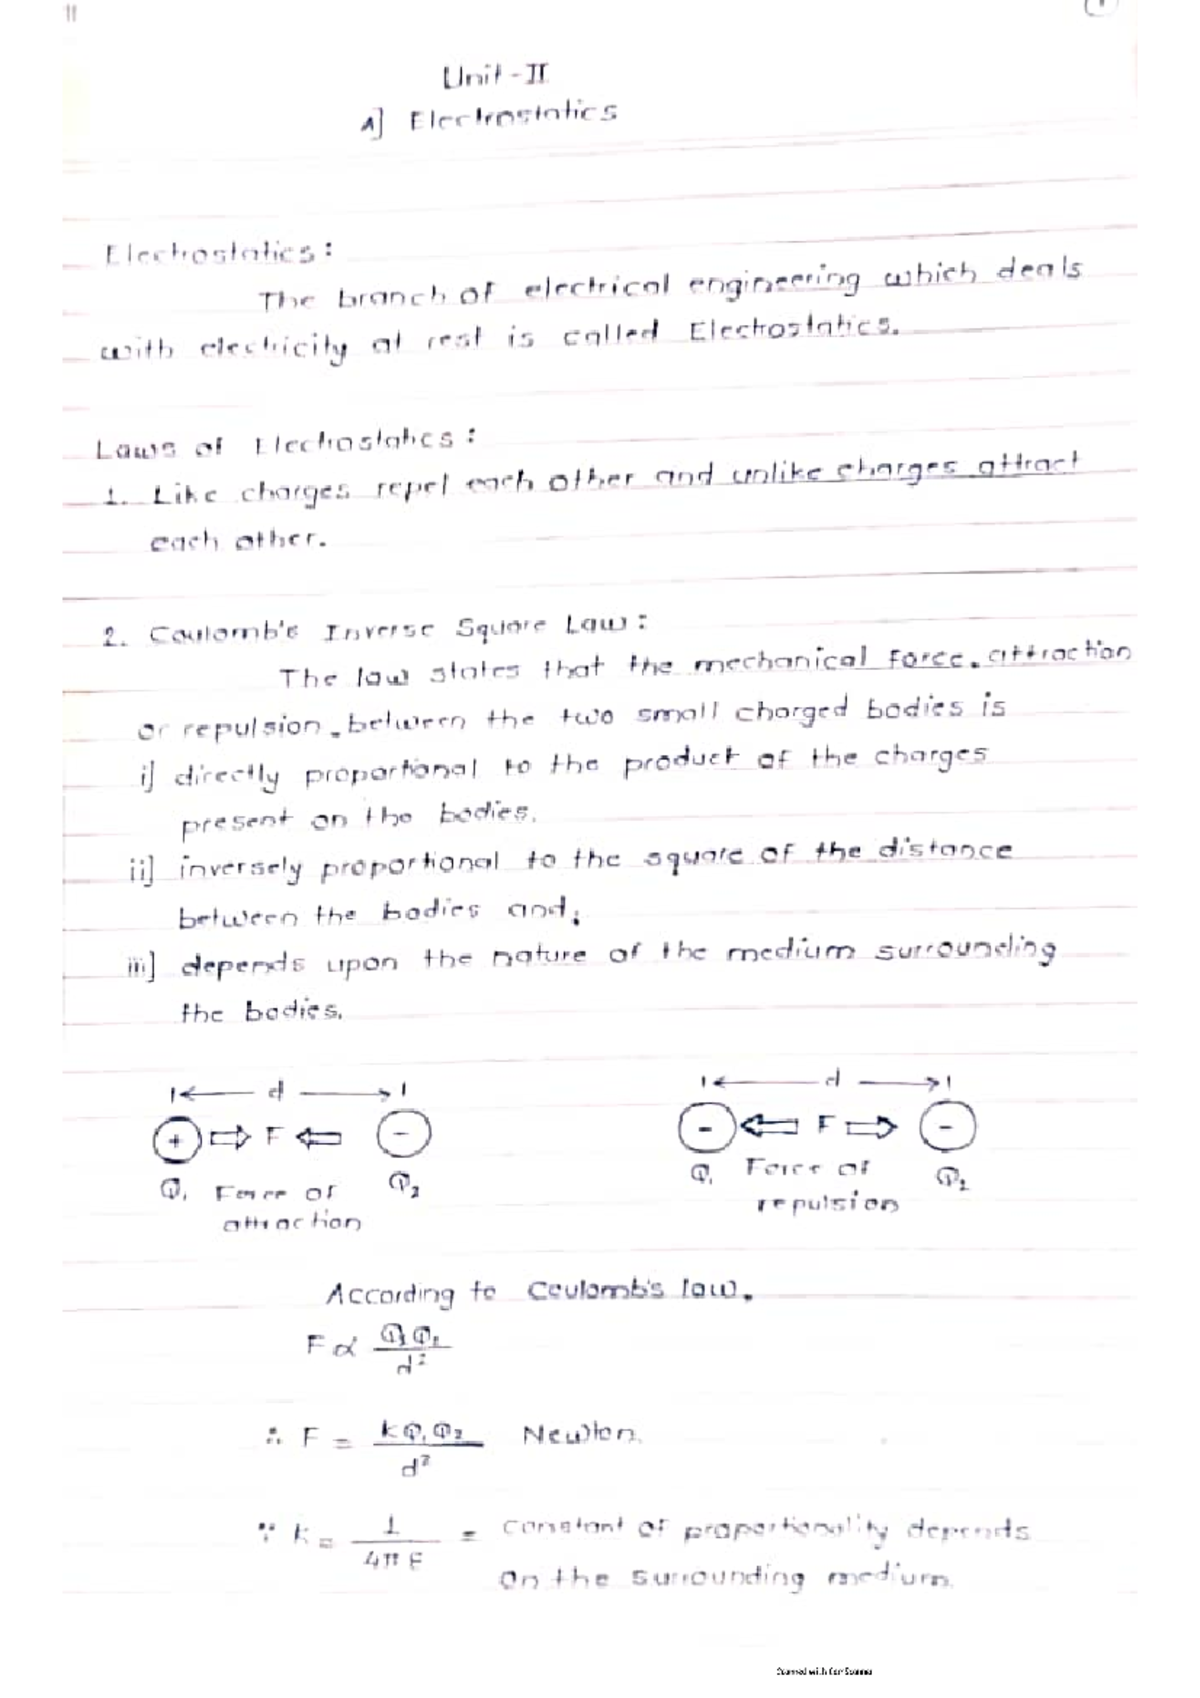 Unit-II
A] Electrostatics
Electrostatics:
The branch of electrical engineering which deals
with electricity at rest is called Electrostatics.
Laws of Electrostatics:
1. Like charges repel each other and unlike charges attract
each other.
2. Coulomb's Inverse Square Law:
The law states that the mechanical force, attraction
or repulsion, between the two small charged bodies is
i] directly proportional to the product of the charges
present on the bodies.
ii] inversely proportional to the square of the distance
between the bodies and,
iii] depends upon the nature of the medium surrounding
the bodies.
d d
+ F - - F -
Q1 Force of Q2 Q1 Force of Q2
attraction repulsion
According to Coulomb's law,
F ∝ Q1Q2 / d²
∴ F = kQ1Q2 / d² Newton.
∵ k = 1 / 4πε = constant of proportionality depends
on the surrounding medium.
Scanned with CamScanner